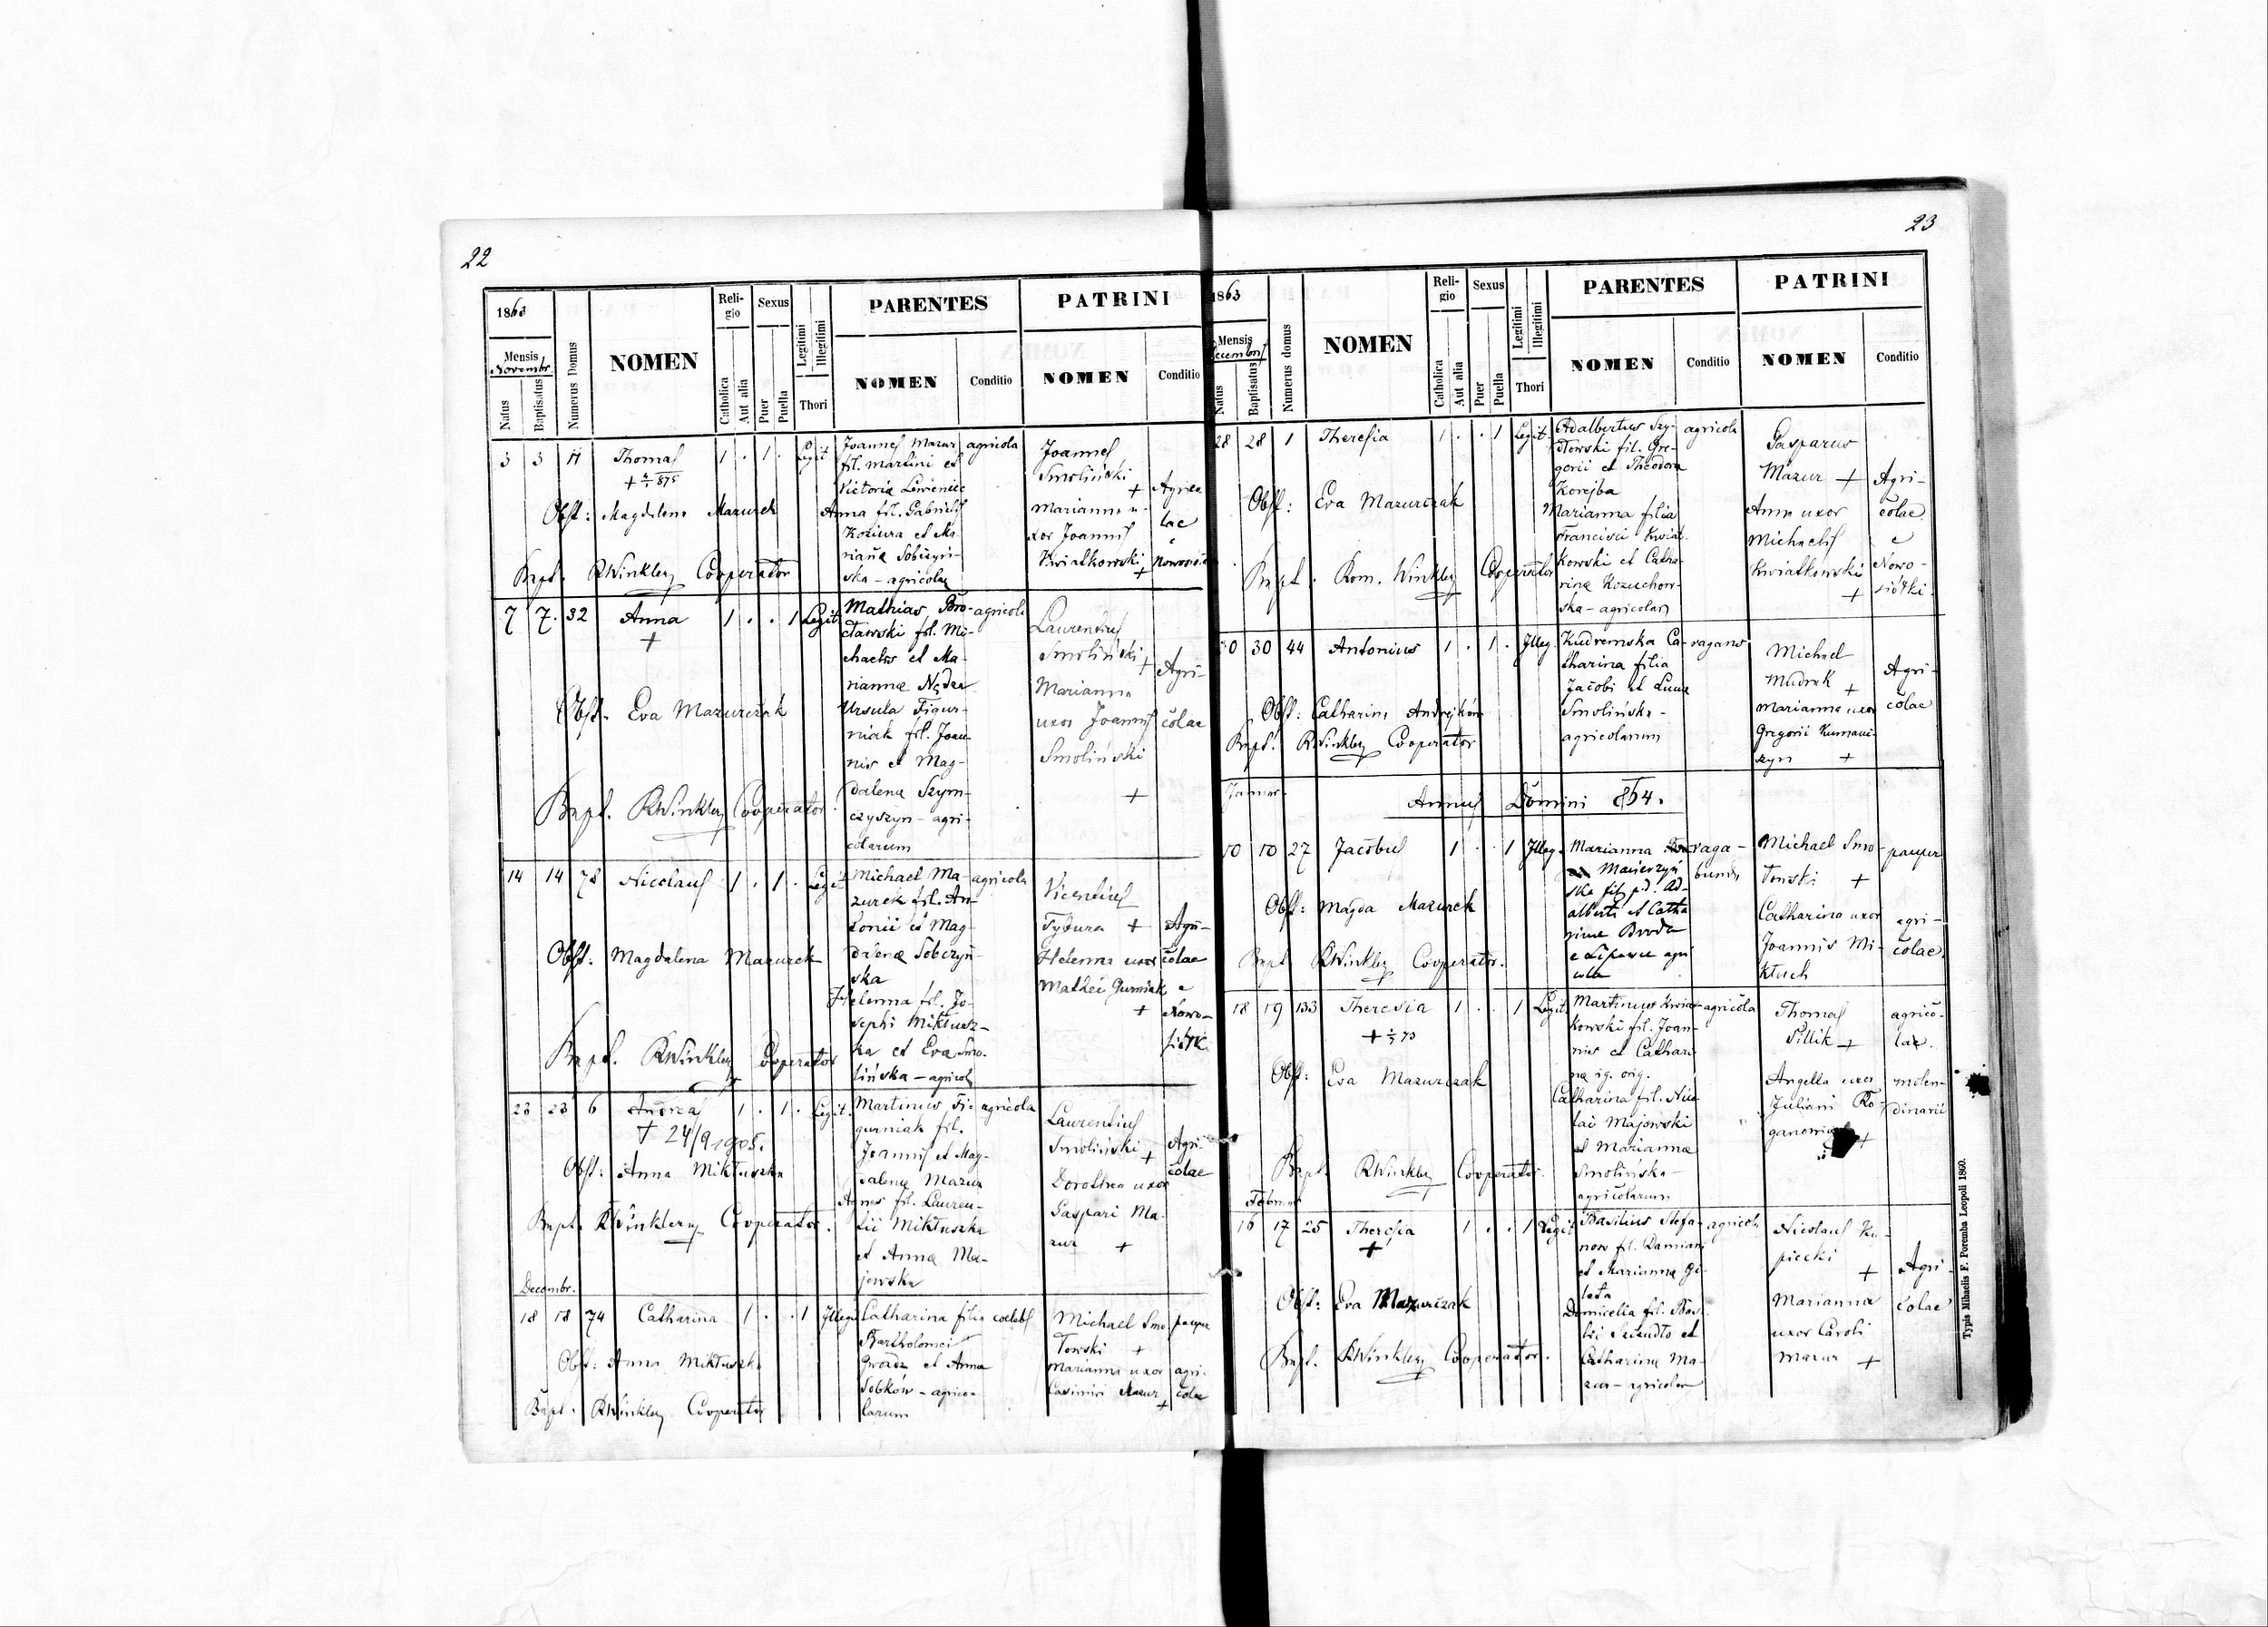 22
1863
Mensis
Novembr.
Natus
Baptisatus
Numerus Domus
NOMEN
Religio
Catholica
Aut alia
Sexus
Puer
Puella
Legitimi
Illegitimi
Thori
PARENTES
NOMEN
Conditio
PATRINI
NOMEN
Conditio
3 3 Thomas 1 . 1 . Legit
Obst: Magdalena Mazurek
Bapt. RWinkler Cooperator
Joannes Mazur
fil. Martini et
Victoria
Anna fil. Gabrielis
Koziura et Ma
rianna Sobczyń-
ska - agricolae
agricola
Joannes
Smoliński
+
Marianna u-
xor Joannis
Kwiatkowski
+
Agrico
lae
e
7 7. 32 Anna 1 . . 1 Legit.
+
Obst. Eva Mazurczak
Bapt. RWinkler Cooperator.
Mathias Bro-
cławski fil. Mi-
chaelis et Ma-
riannae
Ursula Figur-
niak fil. Joan-
nis et Mag-
dalena Szym-
czyszyn - agri-
colarum
agricola
Laurentius
Smoliński
+
Marianna
uxor Joannis
Smoliński
+
Agri-
colae
14 14 78 Nicolaus 1 . 1 . Legit
Obst: Magdalena Mazurek
Bapt. RWinkler Cooperator
Michael Ma-
zurek fil. An-
tonii et Mag-
dalenae Sobczyń-
ska
Helenna fil. Jo-
sephi Miktusz-
ka et Eva Smo-
lińska - agricol
agricola
Vicentius
Tybura +
Helenna uxor
Mathei Gurniak
+
Agri-
colae
e
Nowo-
23 23 6 Andreas 1 . 1 . Legit.
† 24/9 1905.
Obst: Anna Miktuszka
Bapt. RWinkler Cooperator.
Martinus Fi-
gurniak fil.
Joannis et Mag-
dalena Mazur
Agnes fil. Lauren-
tii Miktuszka
et Anna Ma-
jewska
agricola
Laurentius
Smoliński +
Dorothea uxor
Gaspari Ma-
zur +
Agri-
colae
Decembr.
18 18 74 Catharina 1 . . 1 Illegi
Obst: Anna Miktuszka
Bapt. RWinkler Cooperator
Catharina filia
Bartholomei
Gwozdz et Anna
Sobków - agrico-
larum
coelebs
Michael Smo
Towski +
Marianna uxor
Casimiri Mazur
+
pauper
agri-
colae
23
1863
Mensis
Decembris
Natus
Baptisatus
Numerus domus
NOMEN
Religio
Catholica
Aut alia
Sexus
Puer
Puella
Legitimi
Illegitimi
Thori
PARENTES
NOMEN
Conditio
PATRINI
NOMEN
Conditio
28 28 1 Theresia 1 . . 1 Legit.
Obst: Eva Mazurczak
Bapt. Rom. Winkler Cooperator
Adalbertus Szy-
dłowski fil. Gre-
gorii et Theodora
Korejba
Marianna filia
Francisci Kwiat-
kowski et Catha-
rina Kozuchow-
ska - agricolar
agricola
Gasparus
Mazur +
Anna uxor
Michaelis
Kwiatkowski
+
Agri-
colae
e
Nowo-
siółki.
30 30 44 Antonius 1 . 1 . Illeg.
Obst: Catharina Andrejków
Bapt. RWinkler Cooperator
Kudremska Ca-
tharina filia
Jacobi et Lucia
Smolińska -
agricolarum
vagans
Michael
Mudrak +
Marianna uxor
Gregorii Kumani-
szyn +
Agri-
colae
Januar.
Annus Domini 864.
10 10 27 Jacobus 1 . . 1 Illeg.
Obst: Magda Mazurek
Bapt. RWinkler Cooperator.
Marianna
ska fil. p.d. Ad-
alberti et Catha
rinae Broda
e Lipowce agri
cola
vaga-
bunda
Michael Smo-
Towski +
Catharina uxor
Joannis Mi-
ktuch
pauper
agri-
colae.
18 19 133 Theresia 1 . . 1 Legit.
Obst: Eva Mazurczak
Bapt. RWinkler Cooperator.
Martinus Kwiat-
kowski fil. Joan-
nis et Cathari-
na ig. orig.
Catharina fil. Nico-
lai Majowski
et Marianna
Smolińska -
agricolarum
agricola
Thomas
Pillik +
Angella uxor
Juliani Ro-
+
agrico-
lae.
molen-
dinarii
Februar
16 17 25 Theresia 1 . . 1 Legit
+
Obst: Eva Mazurczak
Bapt. RWinkler Cooperator.
Basilius Stefa-
now fil. Damiani
et Marianna Ge-
leta
Domicella fil. Basi-
lii Szkudło et
Catharina Ma-
zur - agricolar
agricola
Nicolaus Ku-
piecki
+
Marianna
uxor Caroli
Mazur +
Agri-
colae
Typis Mihaelis F. Poremba Leopoli 1860.